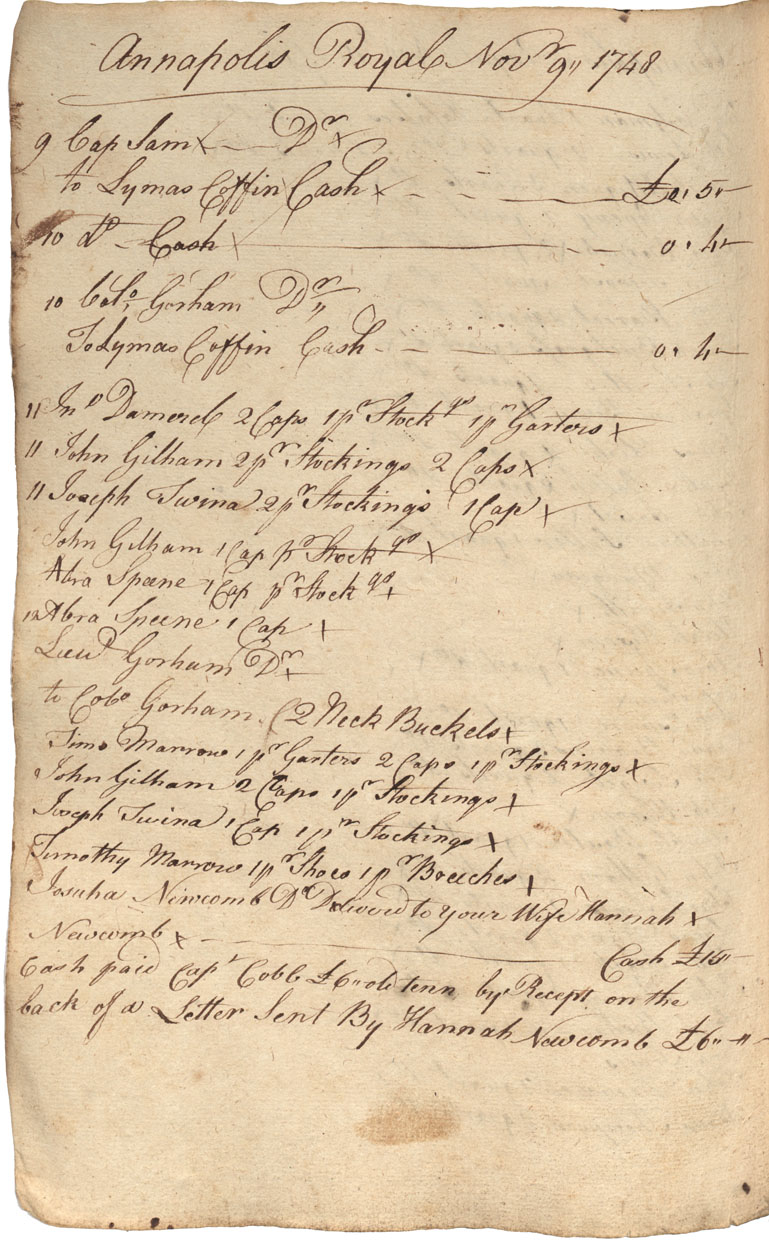 Annapolis Royal Novr 9,, 1748
9 Cap Sam x — Dr x
to Lymas Coffin Cash x - - - — £0,, 5,,
10 do — Cash x — 0,, 4,,
10 Colo,, Gorham Dr,,
To Lymas Coffin Cash - - — 0,, 4,,
11 Jno Damerel 2 Caps 1 pr Stockgs 1 pr Garters x
11 John Gilham 2 pr Stockings 2 Caps x
11 Joseph Twina 2 pr Stockings 1 Cap x
John Gilham 1 Cap pr Stockgs x
Abra Speene 1 Cap pr Stockgs x
12 Abra Speene 1 Cap x
Lieut Gorham Dr x
to Colo Gorham 2 Neck Buckels x
Timo Marrow 1 pr Garters 2 Caps 1 pr Stockings x
John Gilham 2 Caps 1 pr Stockings x
Joseph Twina 1 Cap 1 pr Stockings x
Timothy Marrow 1 pr Shoes 1 pr Breeches x
Josuha Newcomb Dr Delivered to your Wife Hannah x
Newcomb x - - — Cash £
Cash paid Capt Cobb £6,, old tenn by Recept on the
back of a Letter Sent By Hannah Newcomb £6,, - ,, -